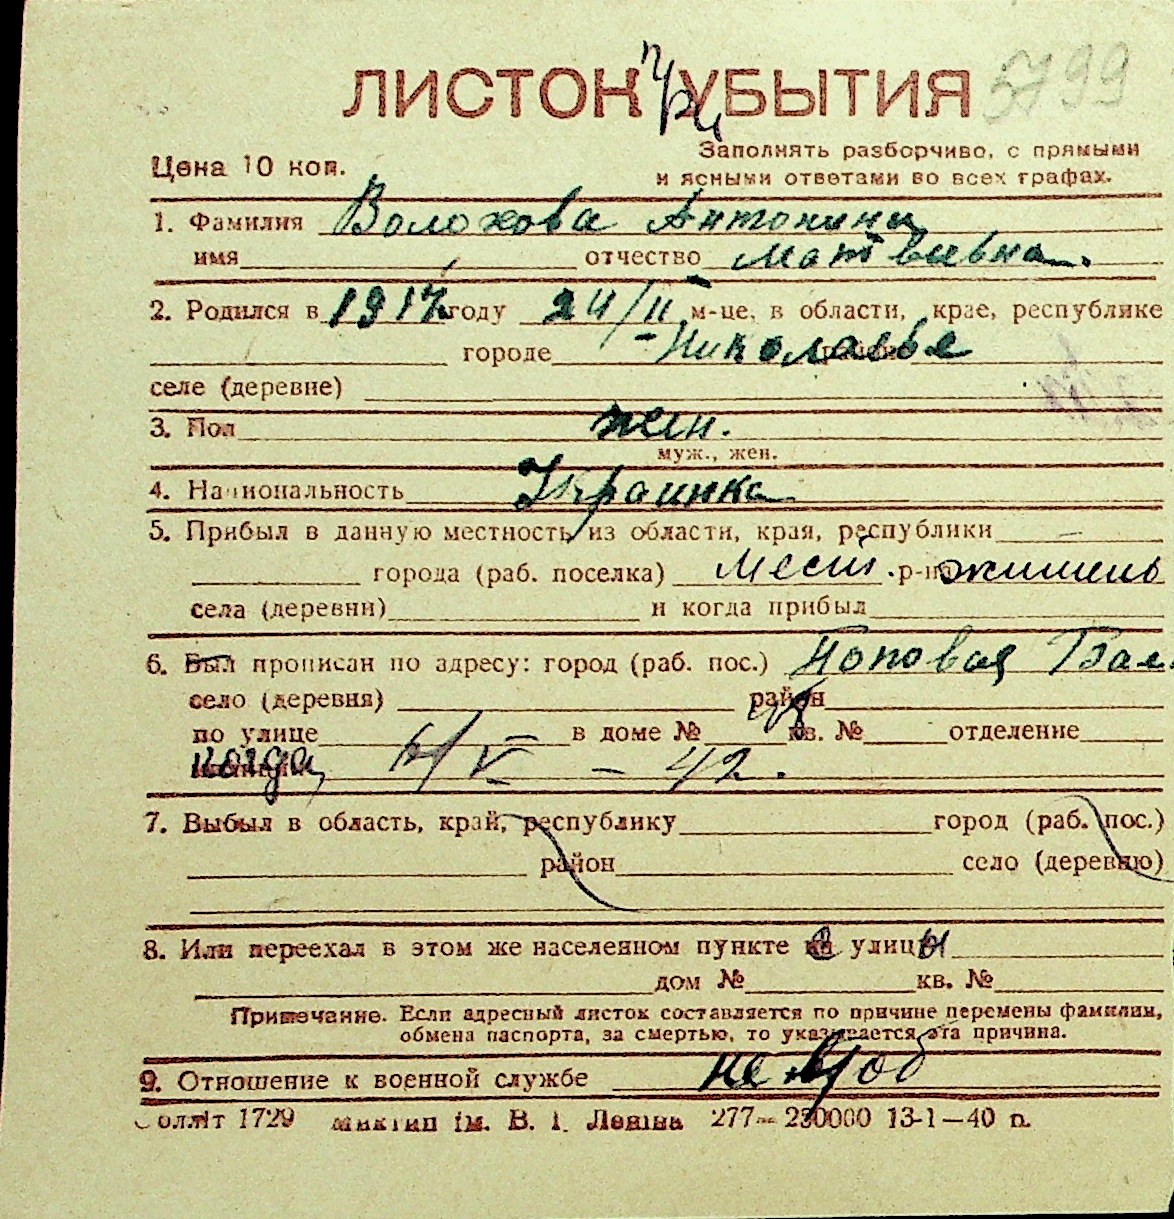 ЛИСТОК УБЫТИЯ 5799
при
Цена 10 коп.
Заполнять разборчиво, с прямыми
и ясными ответами во всех графах.
1. Фамилия Волохова Антонина
имя отчество Матвеевна.
2. Родился в 1917 году 24/II м-це, в области, крае, республике
городе Николаеве
селе (деревне)
3. Пол жен.
муж., жен.
4. Национальность Украинка
5. Прибыл в данную местность из области, края, республики —
города (раб. поселка) Мест. р-на житель
села (деревни) и когда прибыл
6. Был прописан по адресу: город (раб. пос.) Поповая Бал
село (деревня) район
по улице в доме № 48 кв. № отделение
когда, 4/V – 42.
7. Выбыл в область, край, республику город (раб. пос.)
район село (деревню)
8. Или переехал в этом же населенном пункте с улицы
дом № кв. №
Примечание. Если адресный листок составляется по причине перемены фамилии,
обмена паспорта, за смертью, то указывается эта причина.
9. Отношение к военной службе не в/об
олліт 1729 ім. В. І. Леніна 277—230000 13-1—40 п.